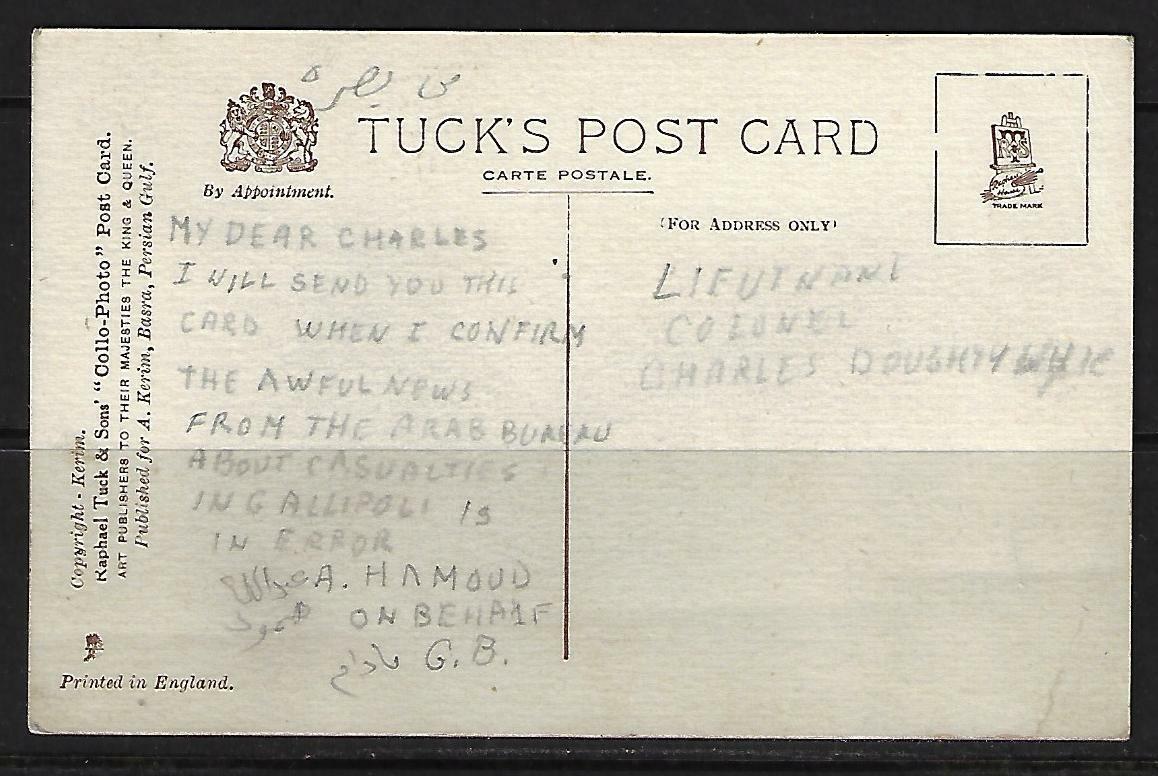 من بصرة
TUCK'S POST CARD
CARTE POSTALE.
By Appointment.
(FOR ADDRESS ONLY)
TRADE MARK
Copyright - Kerim.
Raphael Tuck & Sons' "Collo-Photo" Post Card.
ART PUBLISHERS TO THEIR MAJESTIES THE KING & QUEEN.
Published for A. Kerim, Basra, Persian Gulf.
MY DEAR CHARLES
I WILL SEND YOU THIS
CARD WHEN I CONFIRM
THE AWFUL NEWS
FROM THE ARAB BUREAU
ABOUT CASUALTIES
IN GALLIPOLI IS
IN ERROR
A. HAMOUD
ON BEHALF
G. B.
LIEUTNANT
COLONEL
CHARLES DOUGHTY
Printed in England.